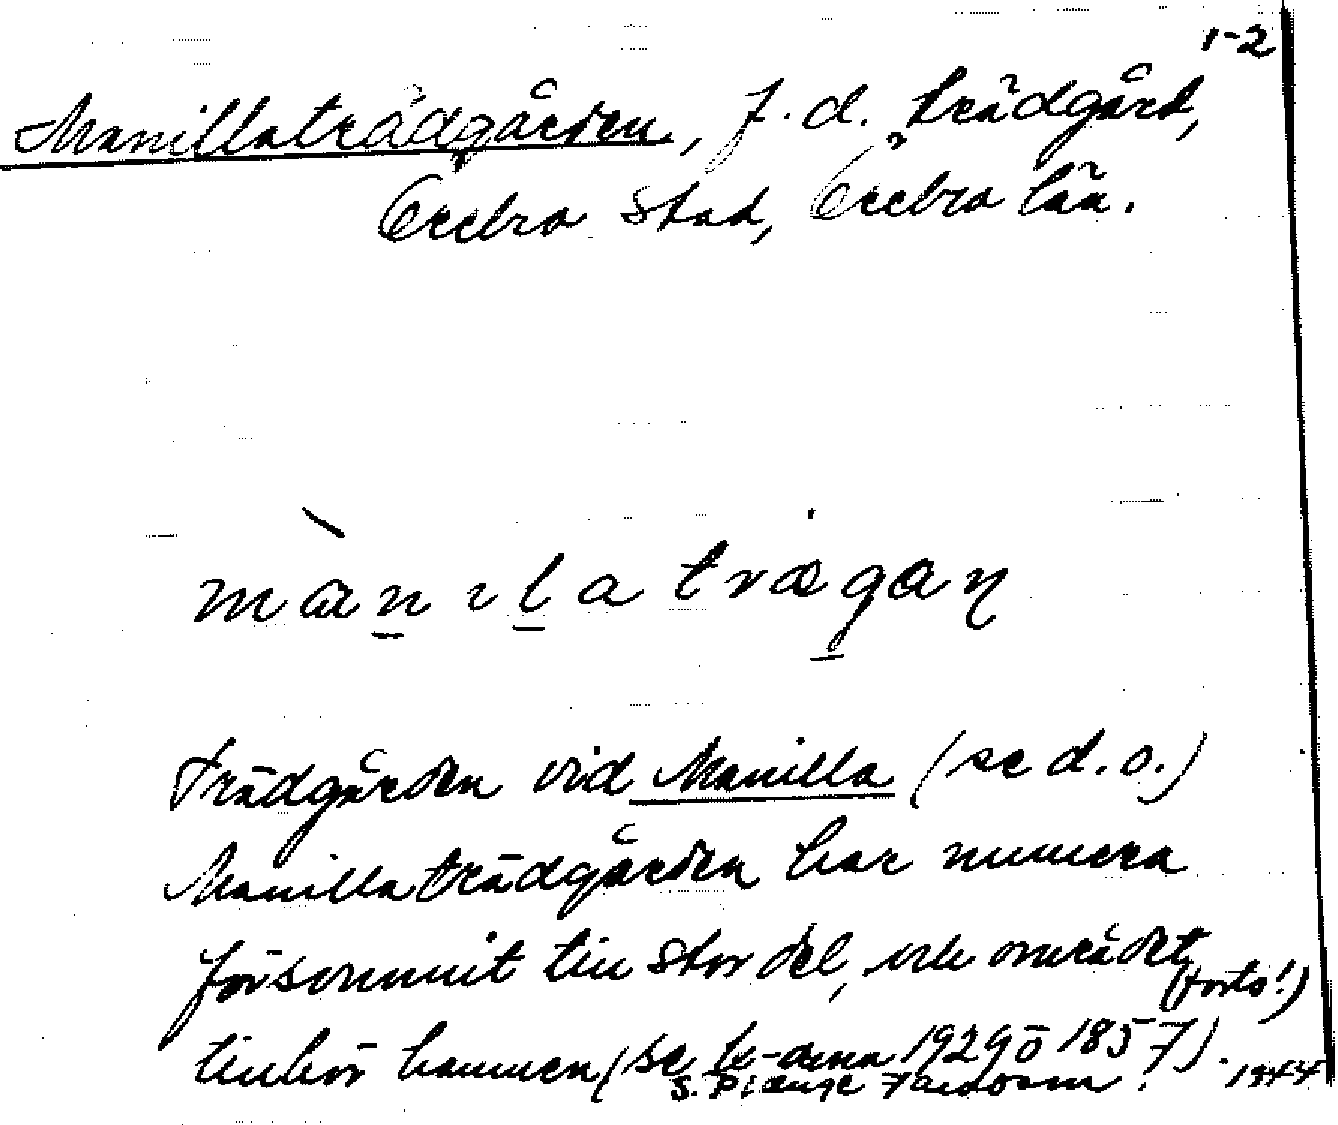 1-2
Manillaträdgården, f.d. trädgård,
Örebro stad, Örebro län.
mànılatrægaɳ
Trädgården vid Manilla (se d.o.)
Manillaträdgården har numera
försvunnit till stor del, och området
(forts!)
tillhör hamnen (se k-orna 1929 o 1857).
S. 1944